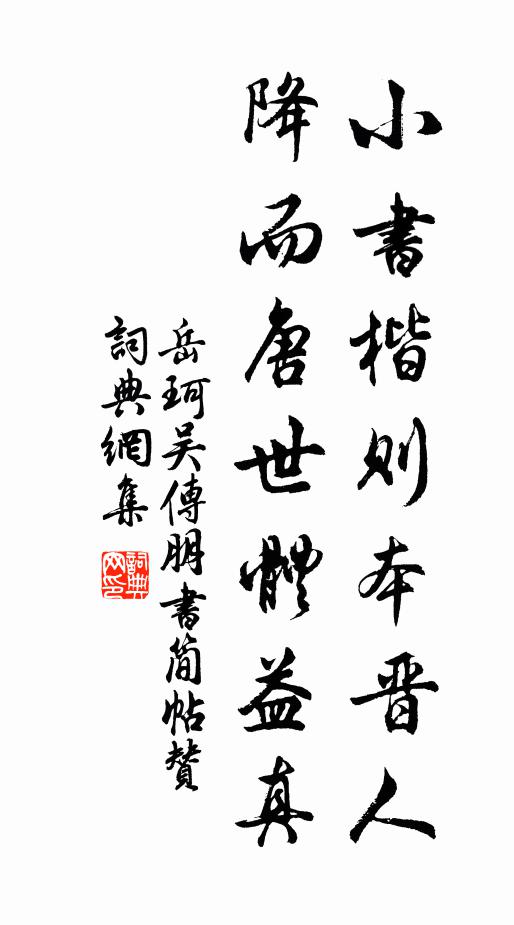 小書楷則本晉人
降而唐世體益真
岳珂吳傅朋書簡帖贊
詞典網集
詞典網印